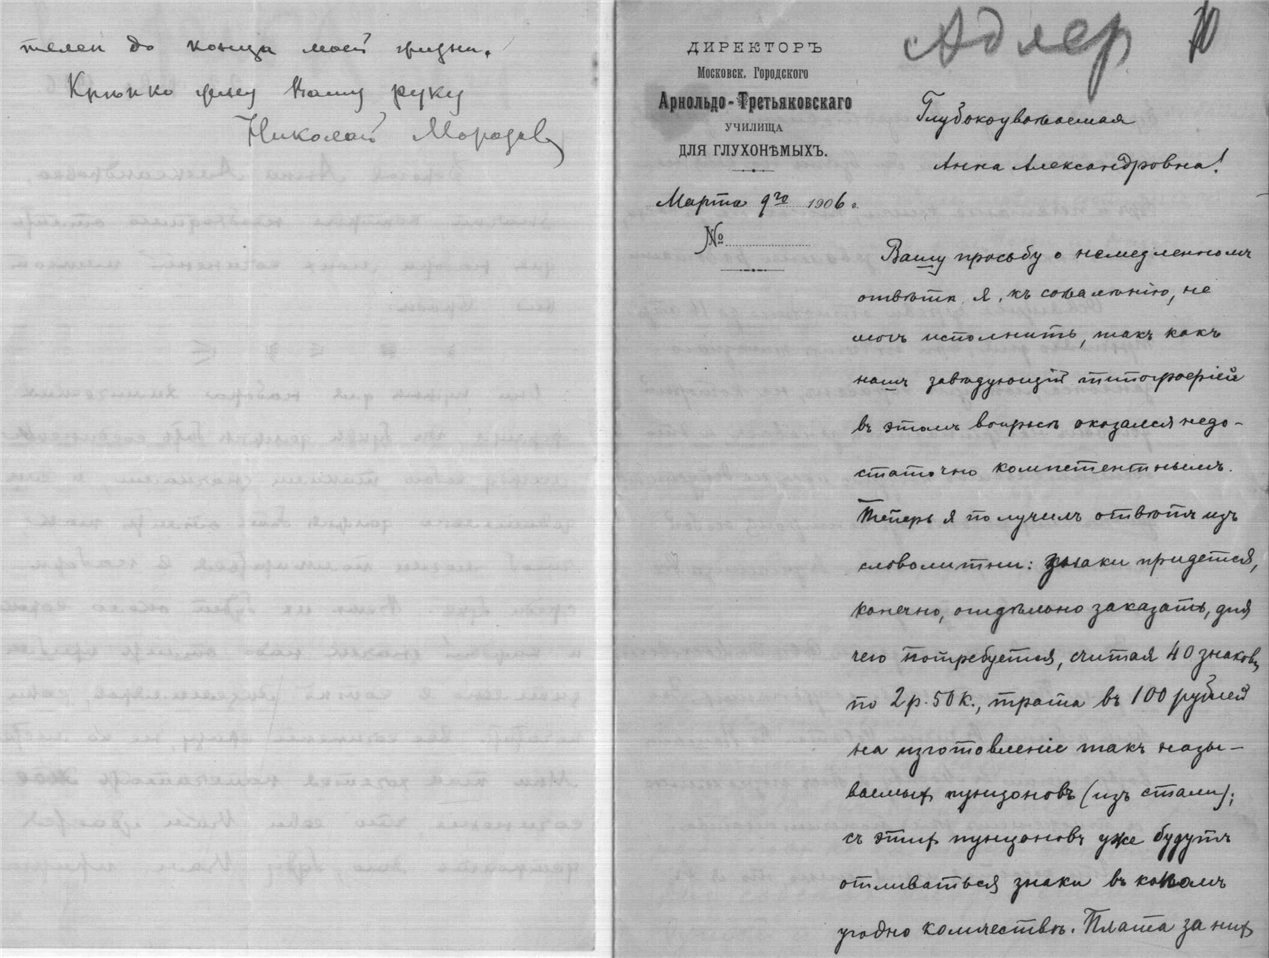 телен до конца моей жизни.
Крѣпко жму Вашу руку
Николай Морозов
Адлер
ДИРЕКТОРЪ
Московск. Городского
Арнольдо-Третьяковскаго
УЧИЛИЩА
ДЛЯ ГЛУХОНѢМЫХЪ.
Марта 9го 1906 г.
№
Глубокоуважаемая
Анна Александровна!
Вашу просьбу о немедленномъ
отвѣтѣ я, къ сожалѣнію, не
могъ исполнить, такъ какъ
нашъ завѣдующій типографіей
въ этомъ вопросѣ оказался недо-
статочно компетентнымъ.
Теперь я получилъ отвѣтъ изъ
словолитни: знаки придется,
конечно, отдѣльно заказать, для
чего потребуется, считая 40 знаковъ
по 2 р. 50 к., трата въ 100 рублей
на изготовленіе такъ назы-
ваемыхъ пунсоновъ (изъ стали);
съ этихъ пунсоновъ уже будутъ
отливаться знаки въ какомъ
угодно количествѣ. Плата за нихъ